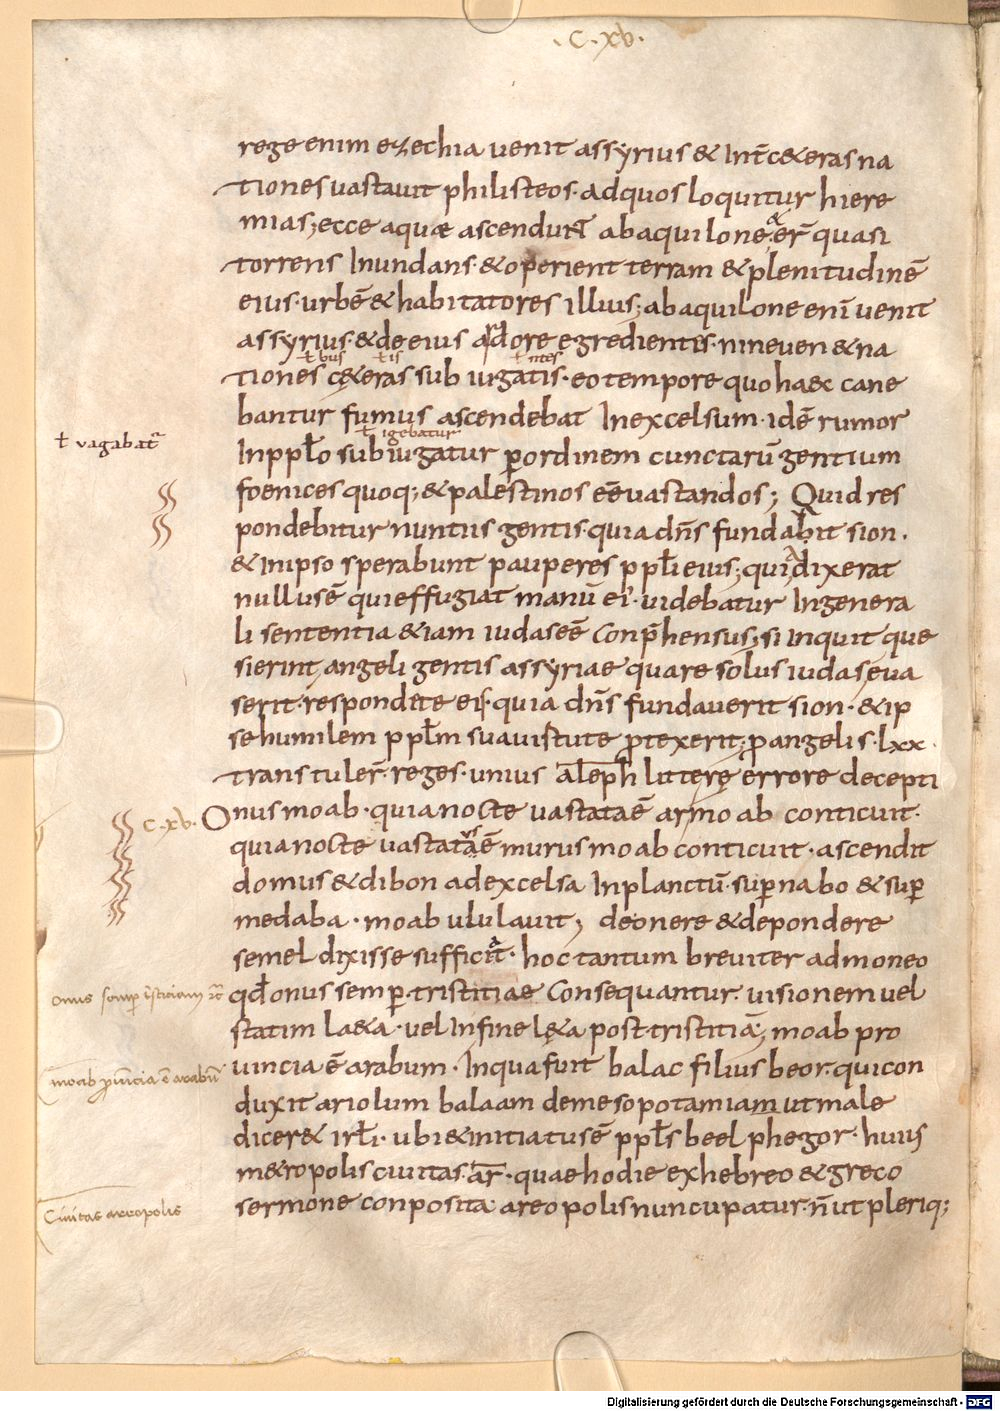 · C · xv ·
rege enim ezechia uenit assyrius & Int̄ c&eras na
tiones uastauit philisteos · ad quos loquitur hiere
mias; ecce aquæ ascendunt ab aquilone & er̄ quasi
torrens Inundans · & operient terram & plenitudinē
eius · urbē & habitatores illius; ab aquilone enī uenit
assyrius · & de eius ardore egredientis · nineuen & na
ł bus ł is ł ntes
tiones c&eras sub iurgatis · eo tempore quo haec cane
bantur fumus ascendebat In excelsum · idē rumor
ł igebatur
ł vagabat᷑
In ppło subiugatur ꝑ ordinem cunctarū gentium
foenices quoq; & palestinos eē uastandos; Quid res
pondebitur nuntiis gentis · quia dn̄s fundabit sion ·
& In ipso sperabunt pauperes ppłi eius; quia dixerat
nullus ē qui effugiat manū ei᷒ · uidebatur In genera
li sententia & iam iudas eē conp̄hensus; si inquit que
sierint angeli gentis assyriae quare solus iudas eua
serit · respondete eis · quia dn̄s fundauerit sion · & ip
se humilem ppłm sua uirtute ꝓtexerit; ꝓ angelis · lxx ·
transtuler̄ · reges · unius aleph litterę errore decepti
C · xv · Onus moab · quia nocte uastata ē ar moab conticuit ·
quia nocte uastatus ē murus moab conticuit · ascendit
domus & dibon ad excelsa In planctū · suꝑ nabo & suꝑ
medaba · moab ululauit; de onere & de pondere
semel dixisse sufficiat · hoc tantum breuiter admoneo
onus semꝑ
qđ onus semꝑ · tristitiae consequantur · uisionem uel
statim l&a · uel In fine l&a post tristitiā; moab pro
moab ꝓuincia ē arabū
uincia ē arabum · In qua fuit balac filius beor · qui con
duxit ariolum balaam de mesopotamiam ut male
dicer& irłi · ubi & initiatus ē ppłs beelphegor · huius
m&ropolis ciuitas · ar̄ · quae hodie ex hebreo & greco
Ciuitas areopolis
sermone conposita areopolis nuncupatur · n̄ ut pleriq;
Digitalisierung gefördert durch die Deutsche Forschungsgemeinschaft - DFG